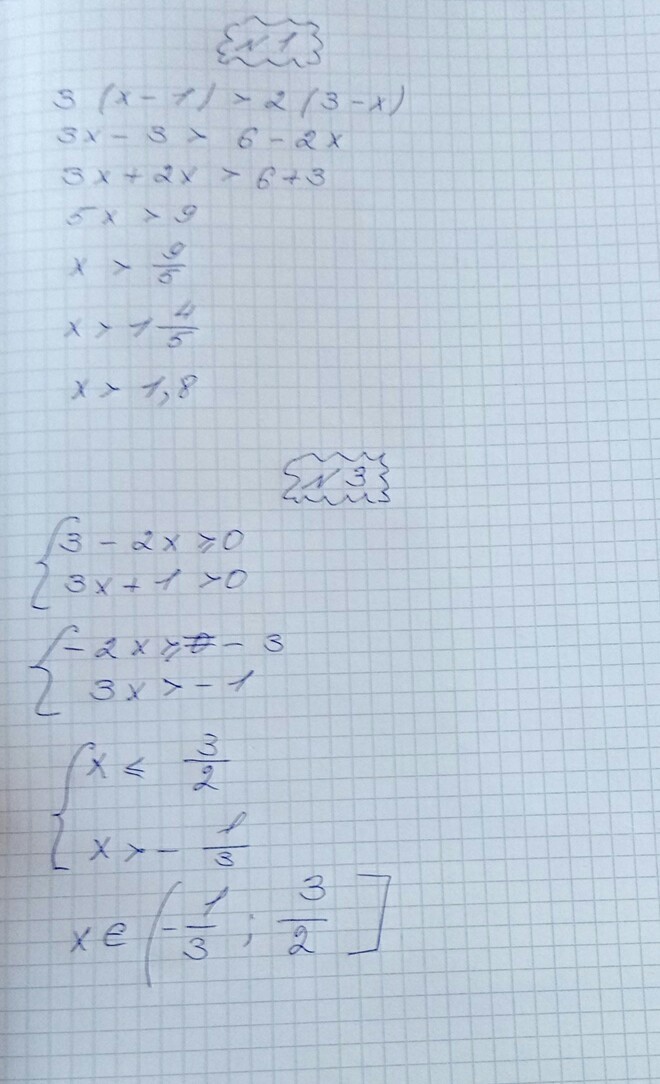 N 1
3 (x - 1) > 2 (3 - x)
3x - 3 > 6 - 2x
3x + 2x > 6 + 3
5x > 9
x > 9/5
x > 1 4/5
x > 1,8
N 3
{ 3 - 2x ≥ 0
3x + 1 > 0
{ - 2x ≥ 0 - 3
3x > - 1
{ x ≤ 3/2
x > - 1/3
x ∈ (- 1/3 ; 3/2 ]